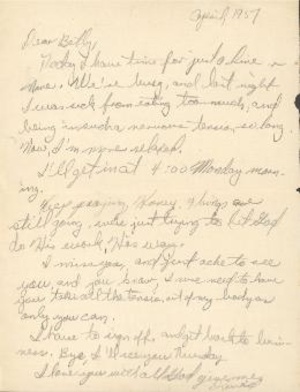 April, 1957
Dear Betty,
Today I have time for just a line or
more. We're busy, and last night
I was sick from eating too much, and
being in such a nervous tension, so long.
Now I'm more relaxed.
I'll get in at 4:00 Monday morn-
ing.
Keep praying, Honey, things are
still going. We're just trying to let God
do His work, His way.
I miss you, and just ache to see
you, and you know, I sure need to have
you take all the tension out of my body as
only you can.
I have to sign off, and get back to busi-
ness. Bye, I'll see you Monday.
I love you with all God gives me